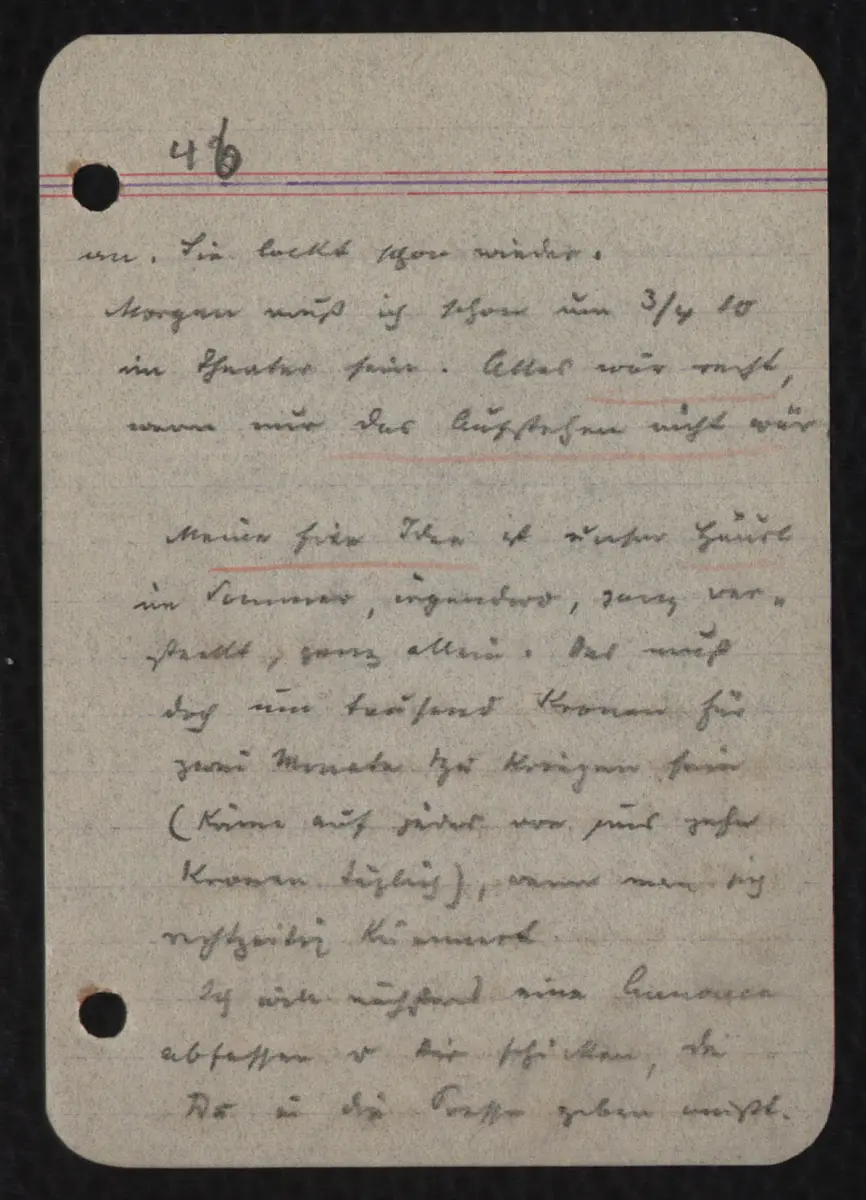 46
an. Sie lockt schon wieder.
Morgen muß ich schon um 3/4 10
im Theater sein. Alles wär recht,
wenn nur das Aufstehen nicht wär.
Meine fixe Idee ist unser Häusl
im Sommer, irgendwo, ganz ver=
steckt, ganz allein. Das muß
doch um tausend Kronen für
zwei Monate zu kriegen sein
(käme auf jedes von uns zehn
Kronen täglich), wenn man sich
rechtzeitig kümmert.
Ich will nächstens eine Annonce
abfassen u Dir schicken, die
Du in die Presse geben mußt.